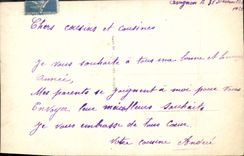 Avignon le 31 Décembre
Chers cousins et cousines
Je vous souhaite à tous une bonne et heureuse
année,
Mes parents se joignent à moi pour vous
Envoyer leur meilleurs souhaits
Je vous embrasse de tout Cœur.
Votre cousine Andrée